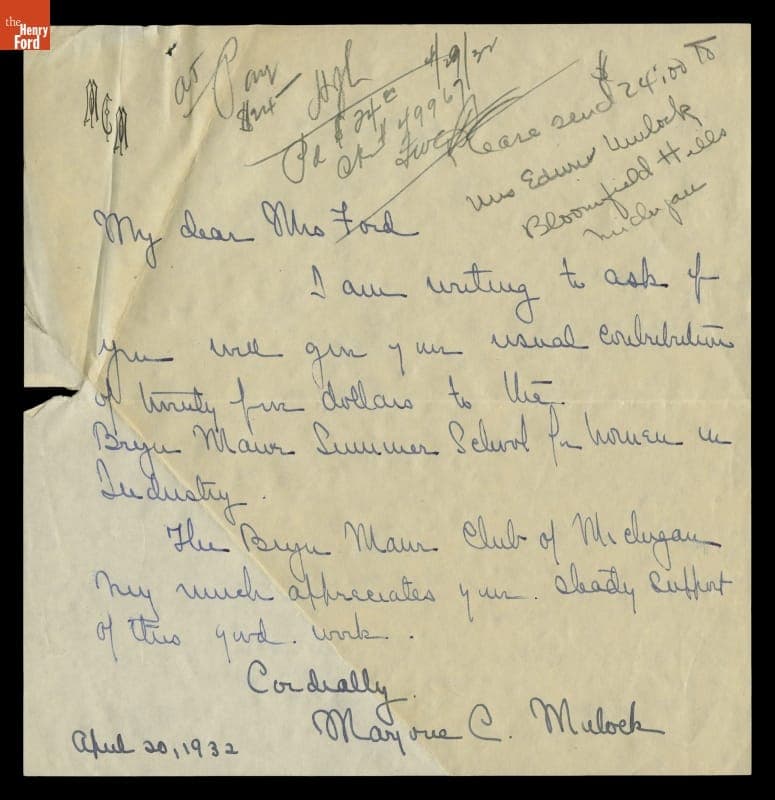 the
Henry
Ford
MCM
Pay
$24
Pd $24.00
4/29/32
Please send $24.00 to
Mrs Edwin Mulock
Bloomfield Hills
Michigan
My dear Mrs Ford
I am writing to ask if
you will give your usual contribution
of twenty five dollars to the
Bryn Mawr Summer School for Women in
Industry.
The Bryn Mawr Club of Michigan
very much appreciates your steady support
of this good work.
Cordially
Marjorie C. Mulock
April 20, 1932